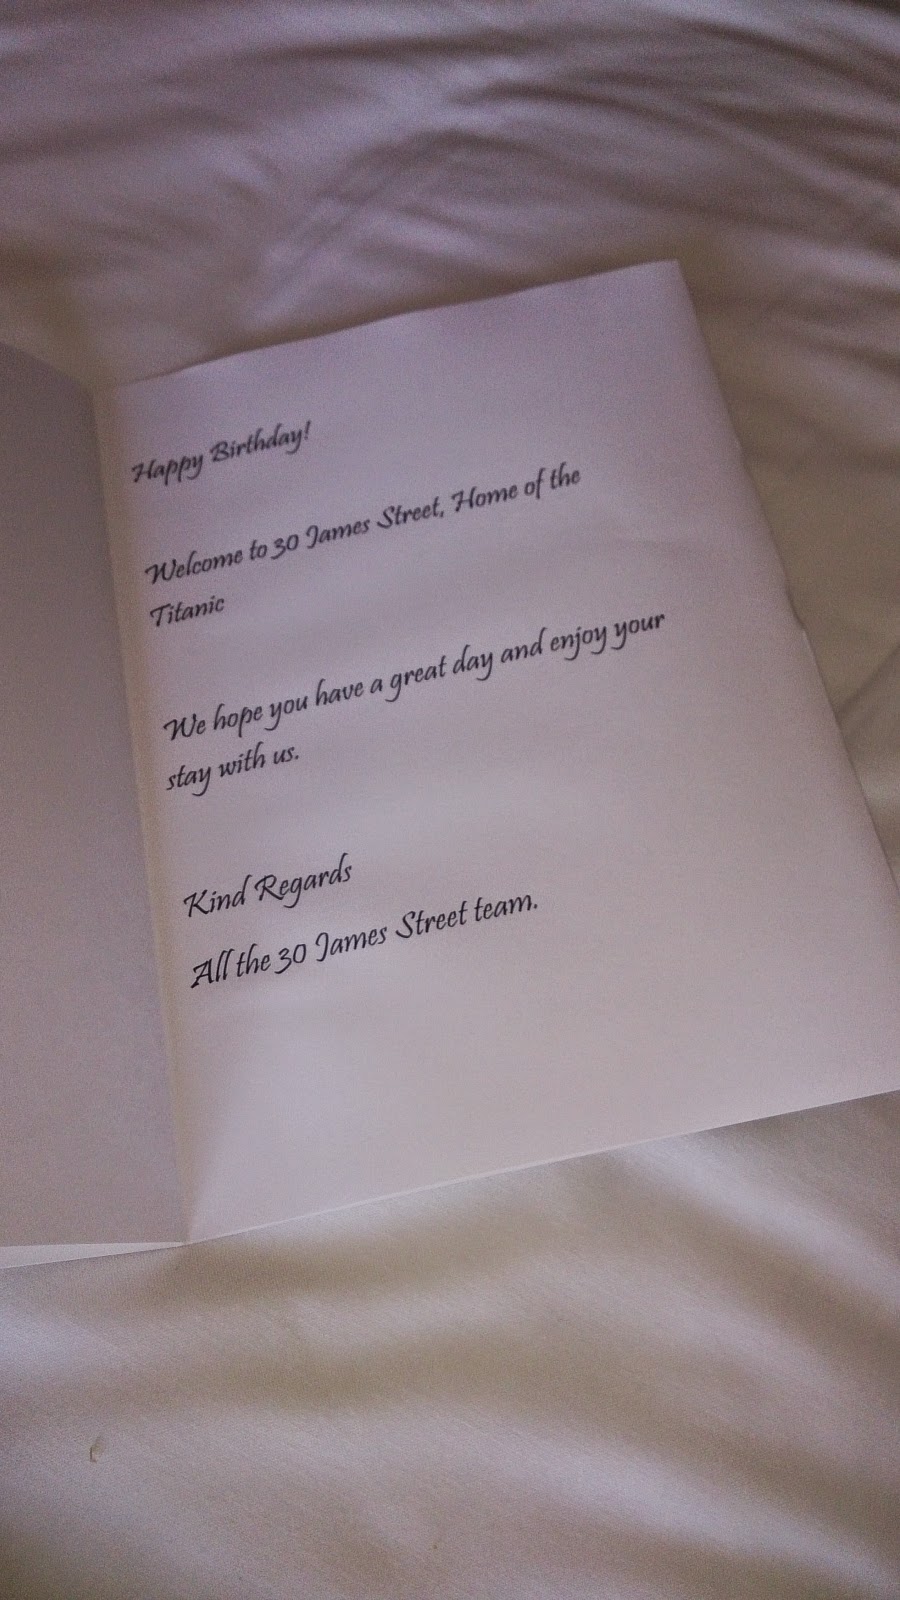 Happy Birthday!
Welcome to 30 James Street, Home of the
Titanic
We hope you have a great day and enjoy your
stay with us.
Kind Regards
All the 30 James Street team.